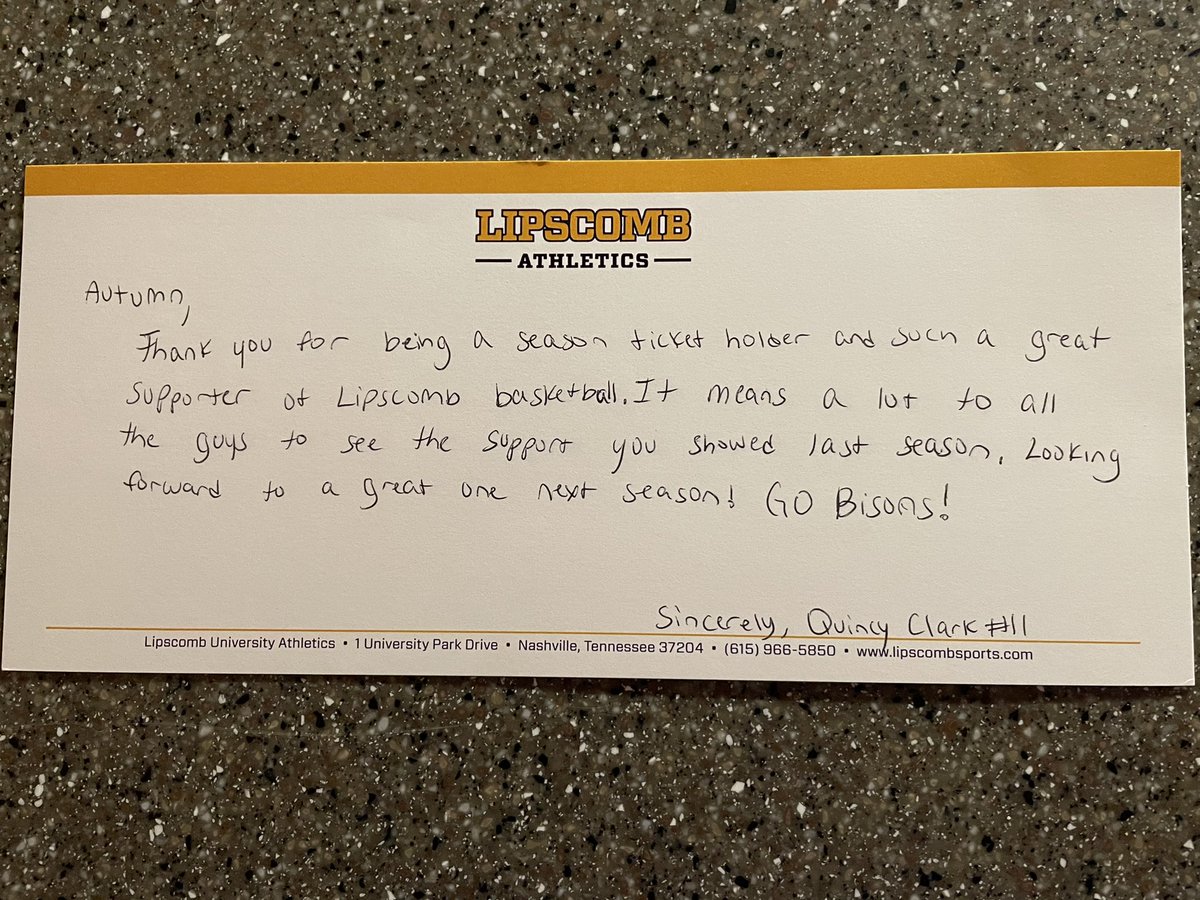 LIPSCOMB
ATHLETICS
Autumn,
Thank you for being a season ticket holder and such a great
supporter of Lipscomb basketball. It means a lot to all
the guys to see the support you showed last season. Looking
forward to a great one next season! GO Bisons!
Sincerely, Quincy Clark #11
Lipscomb University Athletics • 1 University Park Drive • Nashville, Tennessee 37204 • (615) 966-5850 • www.lipscombsports.com